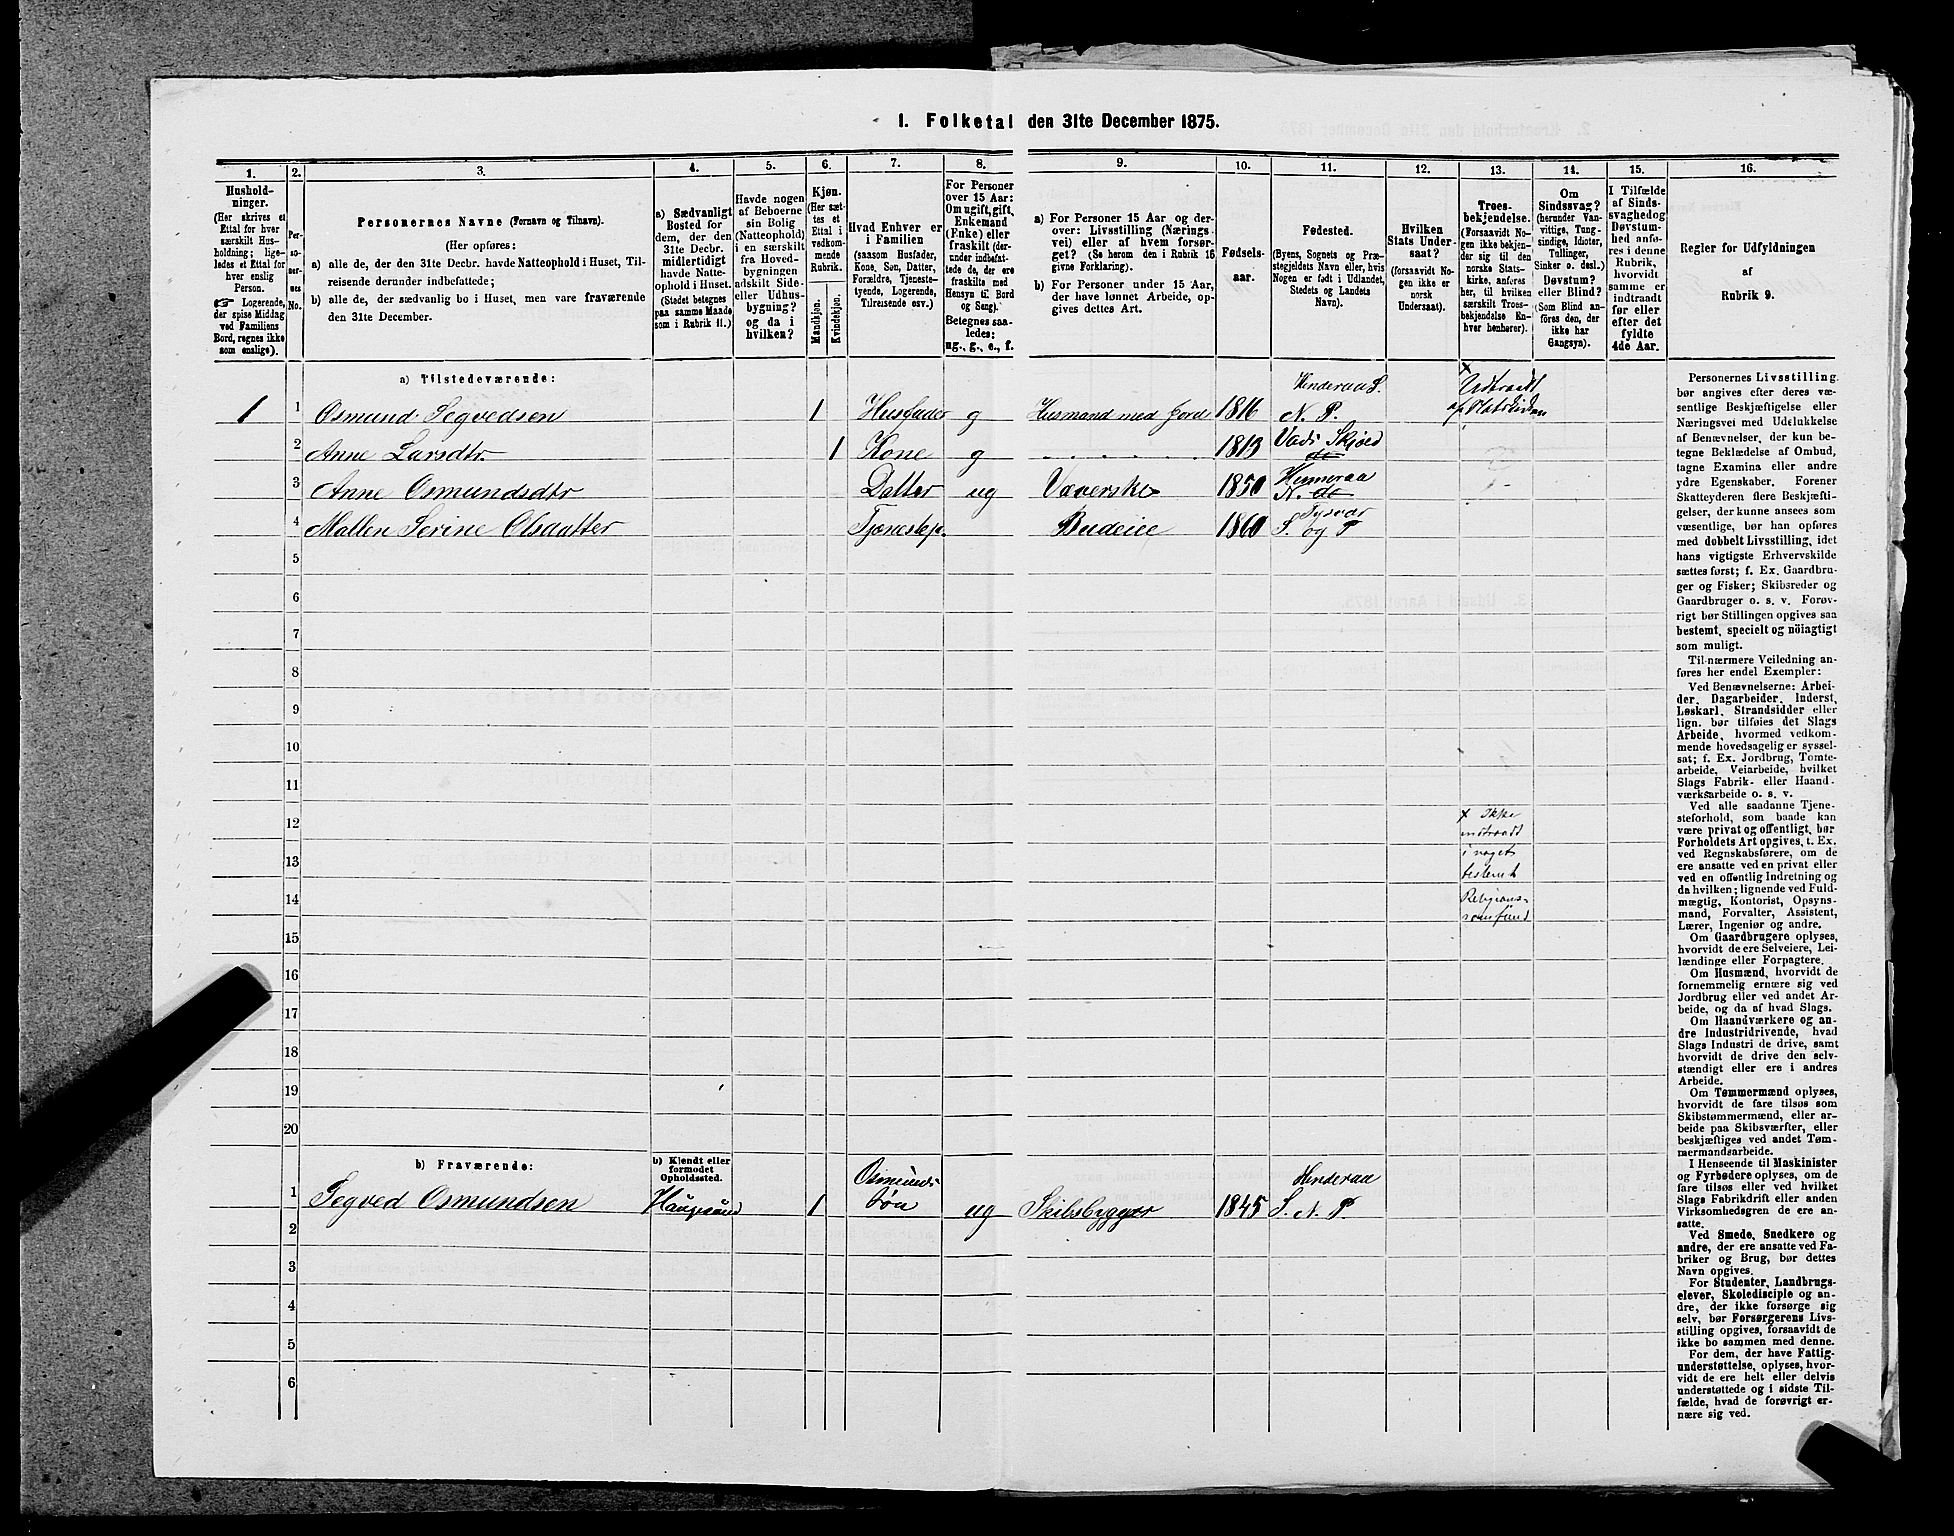 1. Folketal den 31te December 1875.
1. 2. 3. 4. 5. 6. 7. 8. 9. 10. 11. 12. 13. 14. 15. 16.
Hushold-
ninger.
(Her skrives et
Ettal for hver
særskilt Hus-
holdning; lige-
ledes et Ettal for
hver enslig
Person.
☞ Logerende,
der spise Middag
ved Familiens
Bord, regnes ikke
som enslige).
Per-
so-
ner-
nes
No.
Personernes Navne (Fornavn og Tilnavn).
(Her opføres:
a) alle de, der den 31te Decbr. havde Natteophold i Huset, Til-
reisende derunder indbefattede;
b) alle de, der sædvanlig bo i Huset, men vare fraværende
den 31te December.
a) Sædvanligt
Bosted for
dem, der den
31te Decbr.
midlertidigt
havde Natte-
ophold i Huset.
(Stedet betegnes
paa samme Maade
som i Rubrik 11.)
Havde nogen
af Beboerne
sin Bolig
(Natteophold)
i en særskilt
fra Hoved-
bygningen
adskilt Side-
eller Udhus-
bygning?
og da i
hvilken?
Kjøn.
(Her sæt-
tes et
Ettal i
vedkom-
mende
Rubrik.
Mandkjøn.
Kvindekjøn.
Hvad Enhver er
i Familien
(saasom Husfader,
Kone, Søn, Datter,
Forældre, Tjeneste-
tyende, Logerende,
Tilreisende osv.)
For Personer
over 15 Aar:
Om ugift, gift,
Enkemand
(Enke) eller
fraskilt (der-
under indbefat-
tede de, der ere
fraskilte med
Hensyn til Bord
og Seng).
Betegnes saa-
ledes:
ug., g., e., f.
a) For Personer 15 Aar og der-
over: Livsstilling (Nærings-
vei) eller af hvem forsør-
get? (Se herom den i Rubrik 16
givne Forklaring).
b) For Personer under 15 Aar,
der have lønnet Arbeide, op-
gives dettes Art.
Fødsels-
aar.
Fødested.
(Byens, Sognets og Præ-
stegjeldets Navn eller, hvis
Nogen er født i Udlandet,
Stedets og Landets
Navn).
Hvilken
Stats Under-
saat?
(forsaavidt No-
gen ikke er
norsk
Undersaat).
Troes-
bekjendelse.
(Forsaavidt No-
gen ikke bekjen-
der sig til den
norske Stats-
kirke, anføres
her, til hvilken
særskilt Troes-
bekjendelse En-
hver henhører).
Om
Sindssvag?
(herunder Van-
vittige, Tung-
sindige, Idioter,
Tullinger,
Sinker o. desl.)?
Døvstum?
eller Blind?
(Som Blind an-
føres den, der
ikke har
Gangsyn).
I Tilfælde
af Sinds-
svaghed og
Døvstum-
hed anfø-
res i denne
Rubrik,
hvorvidt
samme er
indtraadt
før eller
efter det
fyldte
4de Aar.
Regler for Udfyldningen
af
Rubrik 9.
a) Tilstedeværende:
1 1 Osmund Segvedsen 1 Husfader g Husmand med Jord 1816 N. P.
2 Anne Larsdtr. 1 Kone g Skjold
3 Anne Osmundsdtr Datter ug Væverske 1850 N. do
4 Mallen Serine Olsdatter Tjenestep. Budeie 1860 Tysvær S. og P
5
6
7
8
9
10
11
12
13
14
15
16
17
18
19
20
Udtraadt
af Statskirken
x Ikke
indtraadt
i noget
bestemt
Religions-
samfund
b) Fraværende:
b) Kjendt eller
formodet
Opholdssted.
1 Segved Osmundsen Haugesund 1 Osmunds Søn ug Skibsbygger 1845 S. N. P.
2
3
4
5
6
Personernes Livsstilling
bør angives efter deres væ-
sentlige Beskjæftigelse eller
Næringsvei med Udelukkelse
af Benævnelser, der kun be-
tegne Beklædelse af Ombud,
tagne Examina eller andre
ydre Egenskaber. Forener
Skatteyderen flere Beskjæfti-
gelser, der kunne ansees som
væsentlige, bør han opføres
med dobbelt Livsstilling, idet
hans vigtigste Erhvervskilde
sættes først; f. Ex. Gaardbru-
ger og Fisker; Skibsreder og
Gaardbruger o. s. v. Forøv-
rigt bør Stillingen opgives saa
bestemt, specielt og nöiagtigt
som muligt.
Til nærmere Veiledning an-
føres her endel Exempler:
Ved Benævnelserne: Arbei-
der, Dagarbeider, Inderst,
Løskarl, Strandsidder eller
lign. bør tilføies det Slags
Arbeide, hvormed vedkom-
mende hovedsagelig er syssel-
sat; f. Ex. Jordbrug, Tomte-
arbeide, Veiarbeide, hvilket
Slags Fabrik- eller Haand-
værksarbeide o. s. v.
Ved alle saadanne Tjene-
steforhold, som baade kan
være privat og offentligt, bør
Forholdets Art opgives, t. Ex.
ved Regnskabsførere, om de
ere ansatte ved en privat eller
ved en offentlig Indretning og
da hvilken; lignende ved Fuld-
mægtig, Kontorist, Opsyns-
mand, Forvalter, Assistent,
Lærer, Ingeniør og andre.
Om Gaardbrugere oplyses,
hvorvidt de ere Selveiere, Lei-
lændinge eller Forpagtere.
Om Husmænd, hvorvidt de
fornemmelig ernære sig ved
Jordbrug eller ved andet Ar-
beide, og da af hvad Slags.
Om Haandværkere og an-
dre Industridrivende, hvad
Slags Industri de drive, samt
hvorvidt de drive den selv-
stændigt eller ere i andres
Arbeide.
Om Tømmermænd oplyses,
hvorvidt de fare tilsøs som
Skibstømmermænd, eller ar-
beide paa Skibsværfter, eller
beskjæftiges ved andet Tøm-
mermandsarbeide.
I Henseende til Maskinister
og Fyrbødere oplyses, om de
fare tilsøs eller ved hvilket
Slags Fabrikdrift eller anden
Virksomhedsgren de ere an-
satte.
Ved Smede, Snedkere og
andre, der ere ansatte ved Fa-
briker og Brug, bør dettes
Navn opgives.
For Studenter, Landbrugs-
elever, Skoledisciple og an-
dre, der ikke forsørge sig
selv, bør Forsørgerens Livs-
stilling opgives, forsaavidt de
ikke bo sammen med denne.
For dem, der have Fattig-
understøttelse, oplyses, hvor-
vidt de ere helt eller delvis
understøttede og i sidste Til-
fælde, hvad de forøvrigt er-
nære sig ved.